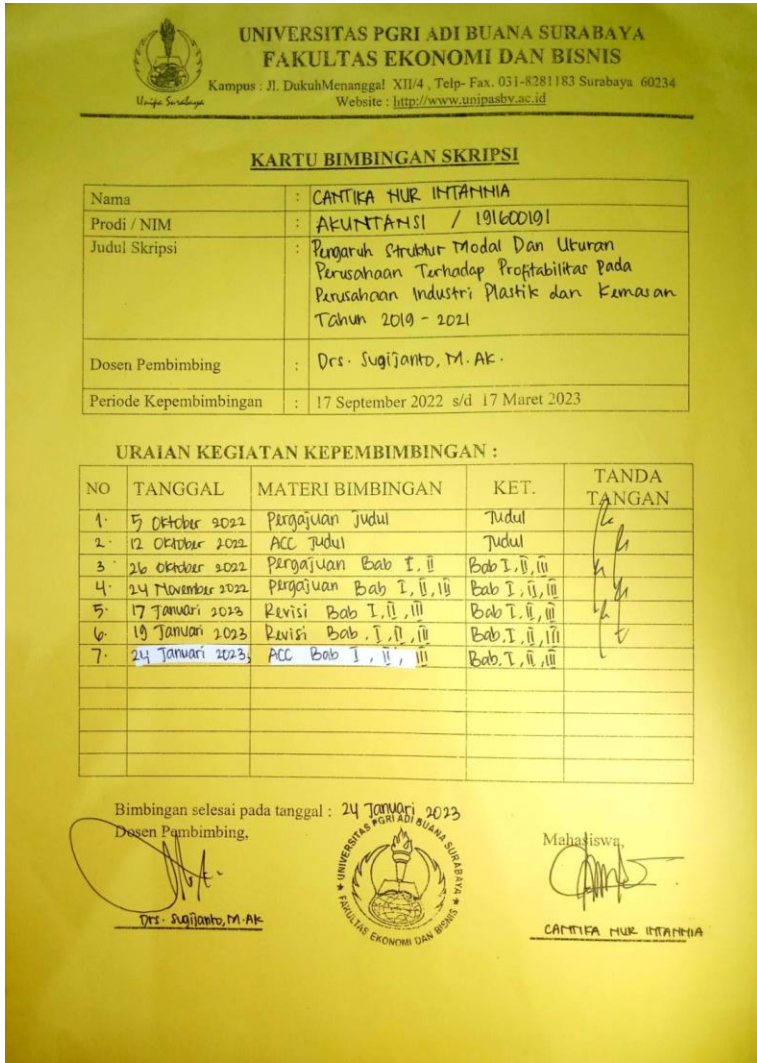 UNIVERSITAS PGRI ADI BUANA SURABAYA
FAKULTAS EKONOMI DAN BISNIS
Kampus : Jl. DukuhMenanggal XII/4 , Telp- Fax. 031-8281183 Surabaya 60234
Website : http://www.unipasby.ac.id
Unipa Surabaya
KARTU BIMBINGAN SKRIPSI
Nama : CANTIKA NUR INTANNIA
Prodi / NIM : AKUNTANSI / 191600191
Judul Skripsi : Pengaruh Struktur Modal Dan Ukuran
Perusahaan Terhadap Profitabilitas Pada
Perusahaan Industri Plastik dan Kemasan
Tahun 2019 - 2021
Dosen Pembimbing : Drs. Sugijanto, M. Ak.
Periode Kepembimbingan : 17 September 2022 s/d 17 Maret 2023
URAIAN KEGIATAN KEPEMBIMBINGAN :
NO TANGGAL MATERI BIMBINGAN KET. TANDA TANGAN
1. 5 Oktober 2022 Pergajuan Judul Judul
2. 12 Oktober 2022 ACC Judul Judul
3 26 Oktober 2022 Pergajuan Bab I, II Bab I, II, III
4. 24 November 2022 Pergajuan Bab I, II, III Bab I, II, III
5. 17 Januari 2023 Revisi Bab I, II, III Bab I, II, III
6. 19 Januari 2023 Revisi Bab. I, II, III Bab, I, II, III
7. 24 Januari 2023, ACC Bab I, II, III Bab, I, II, III
Bimbingan selesai pada tanggal : 24 Januari 2023
Dosen Pembimbing, Mahasiswa,
UNIVERSITAS PGRI ADI BUANA SURABAYA
FAKULTAS EKONOMI DAN BISNIS
Drs. Sugijanto, M.AK CANTIKA NUR INTANNIA